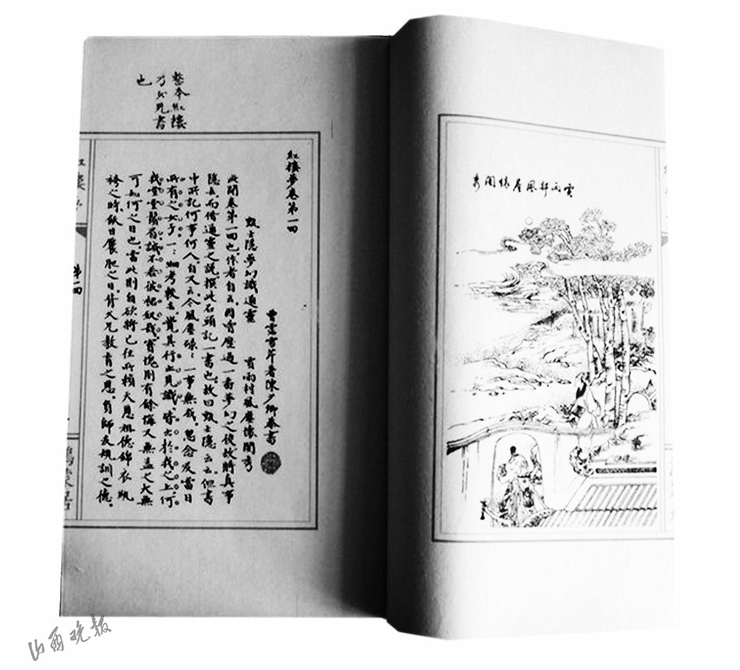 賈雨村風塵懷閨秀
整本紅樓
書
也
紅樓夢卷第一回
曹霑雪芹著陳夕卿恭書
甄士隱夢幻識通靈 賈雨村風塵懷閨秀
此開卷第一回也作者自云因曾歷過一番夢幻之後故將真事
隱去而借通靈之說撰此石頭記一書也故曰甄士隱云云但書
中所記何事何人自又云今風塵碌碌一事無成忽念及當日
所有之女子一一細考較去覺其行止見識皆出於我之上何
我堂堂鬚眉誠不若彼裙釵哉實愧則有餘悔又無益之大無
可如何之日也當此則自欲將已往所賴天恩祖德錦衣紈
袴之時飫甘饜肥之日背父兄教育之恩負師友規訓之德
紅樓夢
第一回
山西晚報